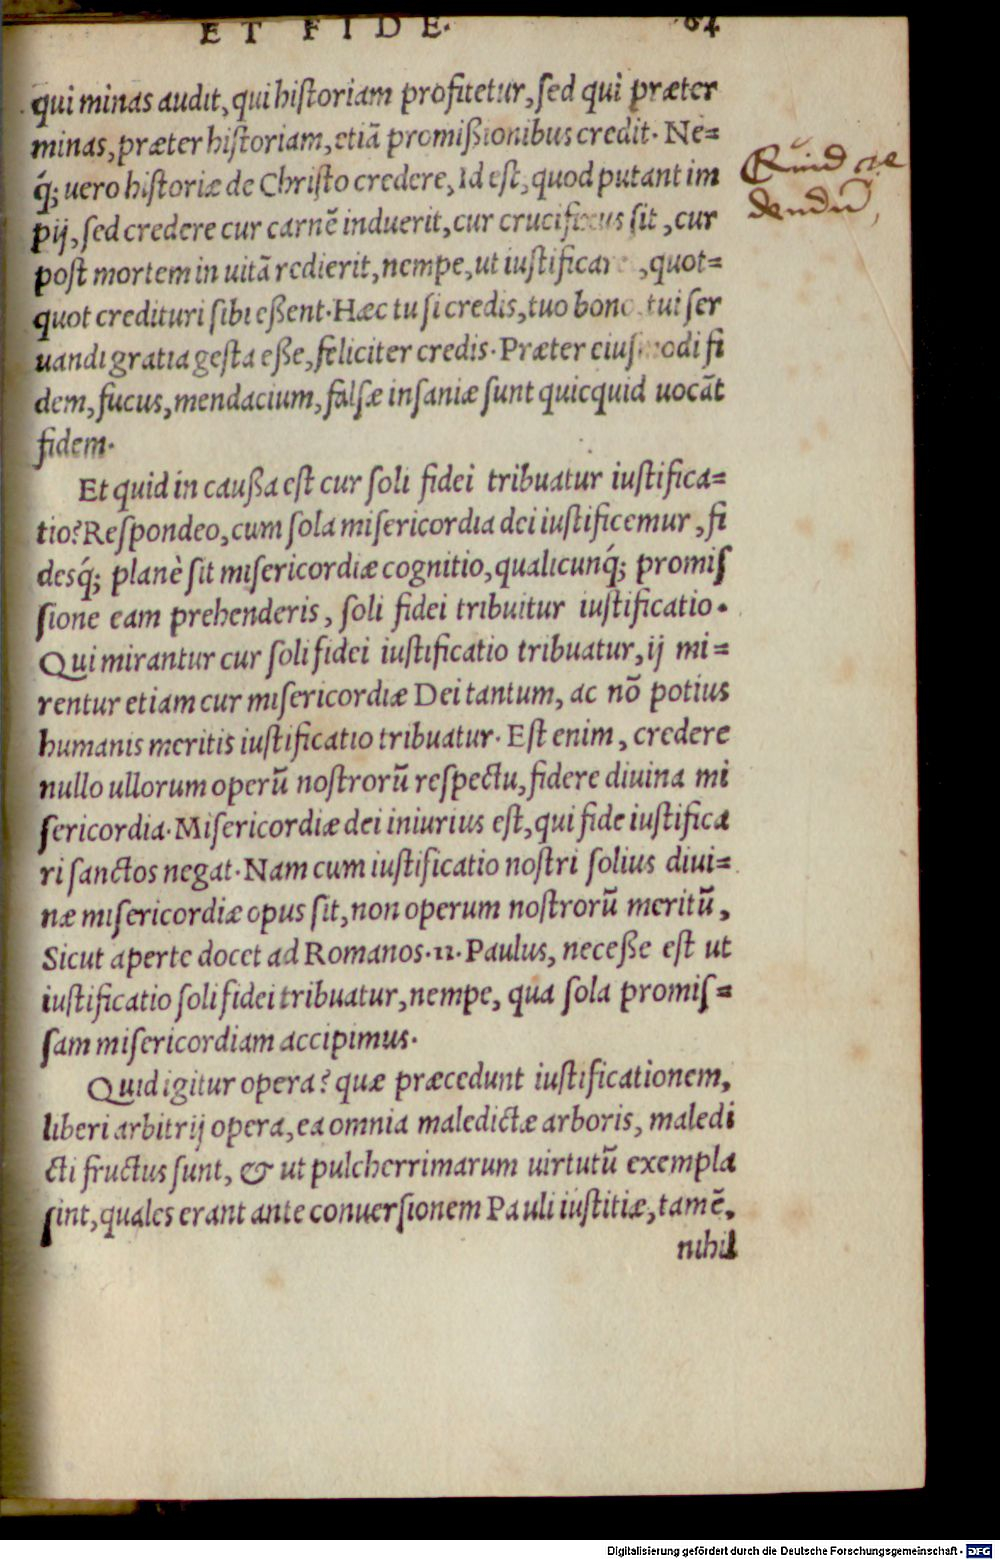 ET FIDE. 64
qui minas audit, qui historiam profitetur, sed qui præter
minas, præter historiam, etiã promißionibus credit. Ne=
q́; uero historiæ de Christo credere, Id est, quod putant im
pij, sed credere cur carnẽ induerit, cur crucifixus sit, cur
post mortem in uitã redierit, nempe, ut iustificar , quot=
quot credituri sibi eßent. Hæc tu si credis, tuo bono tui ser
uandi gratia gesta eße, feliciter credis. Præter eiusmodi fi
dem, fucus, mendacium, falsæ insaniæ sunt quicquid uocãt
fidem.
Et quid in caußa est cur soli fidei tribuatur iustifica=
tio? Respondeo, cum sola misericordia dei iustificemur, fi
desq́; planè sit misericordiæ cognitio, qualicunq́; promis
sione eam prehenderis, soli fidei tribuitur iustificatio.
Qui mirantur cur soli fidei iustificatio tribuatur, ij mi=
rentur etiam cur misericordiæ Dei tantum, ac nõ potius
humanis meritis iustificatio tribuatur. Est enim, credere
nullo ullorum operũ nostrorũ respectu, fidere diuina mi
sericordia. Misericordiæ dei iniurius est, qui fide iustifica
ri sanctos negat. Nam cum iustificatio nostri solius diui=
næ misericordiæ opus sit, non operum nostrorũ meritũ,
Sicut aperte docet ad Romanos. 11. Paulus, neceße est ut
iustificatio soli fidei tribuatur, nempe, qua sola promis=
sam misericordiam accipimus.
Quid igitur opera? quæ præcedunt iustificationem,
liberi arbitrij opera, ea omnia maledictæ arboris, maledi
cti fructus sunt, & ut pulcherrimarum uirtutũ exempla
sint, quales erant ante conuersionem Pauli iustitiæ, tamẽ,
nihil
Quid cre
dendũ,
Digitalisierung gefördert durch die Deutsche Forschungsgemeinschaft - DFG